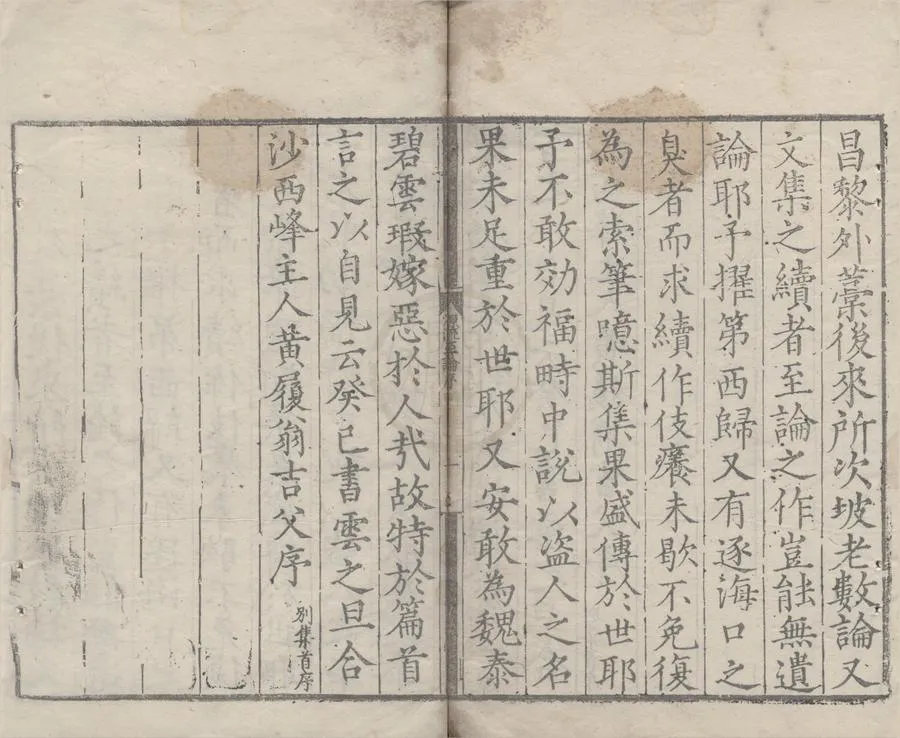 昌黎外藁後來所次坡老數論又
文集之續者至論之作豈能無遺
論耶予擢第西歸又有逐海口之
臭者而求續作伎癢未歇不免復
為之索筆噫斯集果盛傳於世耶
予不敢効福畤中說以盜人之名
果未足重於世耶又安敢為魏泰
碧雲瑕嫁惡於人㢤故特於篇首
言之以自見云癸巳書雲之旦合
沙西峰主人黄履翁吉父序
別集首序